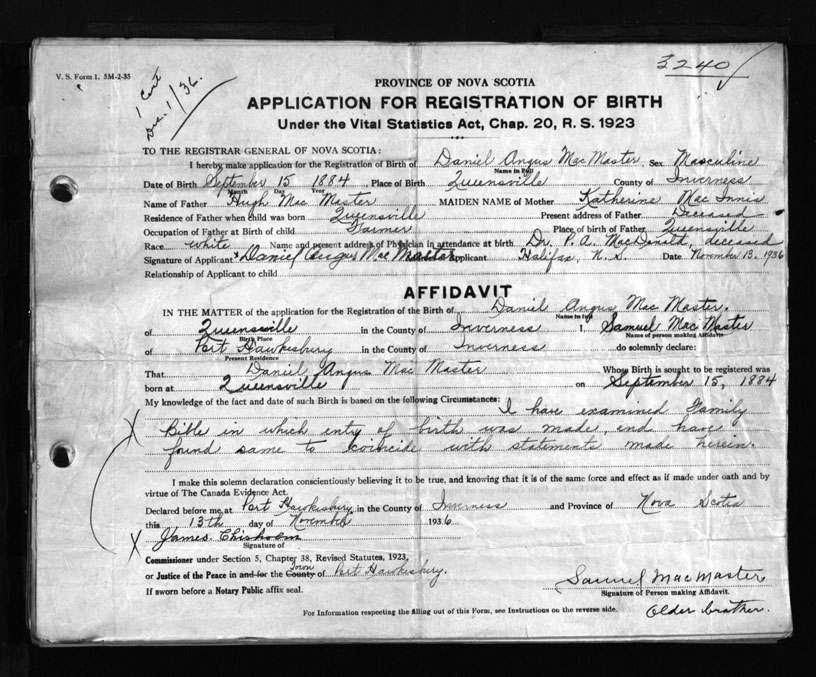 3240
V. S. Form 1. 3M-2-35
1 Cert
Dec. 1/36.
PROVINCE OF NOVA SCOTIA
APPLICATION FOR REGISTRATION OF BIRTH
Under the Vital Statistics Act, Chap. 20, R. S. 1923
TO THE REGISTRAR GENERAL OF NOVA SCOTIA:
I hereby make application for the Registration of Birth of Daniel Angus MacMaster Sex Masculine
Name in Full
Date of Birth September 15 1884 Place of Birth Queensville County of Inverness
Month Day Year
Name of Father Hugh Mac Master MAIDEN NAME of Mother Katherine Mac Innis
Residence of Father when child was born Queensville Present address of Father Deceased
Occupation of Father at Birth of child Farmer Place of birth of Father Queensville
Race white Name and present address of Physician in attendance at birth Dr. P. A. MacDonald, deceased
Signature of Applicant x Daniel Angus Mac Master Applicant Halifax, N. S. Date November 13, 1936
Relationship of Applicant to child
AFFIDAVIT
IN THE MATTER of the application for the Registration of the Birth of Daniel Angus Mac Master.
Name in full
of Queensville in the County of Inverness I, Samuel Mac Master
Birth Place Name of person making Affidavit
of Port Hawkesbury in the County of Inverness do solemnly declare:
Present Residence
That Daniel Angus Mac Master Whose Birth is sought to be registered was
born at Queensville on September 15, 1884
My knowledge of the fact and date of such Birth is based on the following Circumstances: I have examined Family
X Bible in which entry of birth was made, and have
found same to coincide with statements made herein.
I make this solemn declaration conscientiously believing it to be true, and knowing that it is of the same force and effect as if made under oath and by
virtue of The Canada Evidence Act.
Declared before me at Port Hawkesbury in the County of Inverness and Province of Nova Scotia
this 13th day of November 1936
X James Chisholm
Signature of
Commissioner under Section 5, Chapter 38, Revised Statutes, 1923,
Town
or Justice of the Peace in and for the County of Port Hawkesbury.
If sworn before a Notary Public affix seal.
Samuel MacMaster
Signature of Person making Affidavit.
Older brother.
For Information respecting the filling out of this Form, see Instructions on the reverse side.